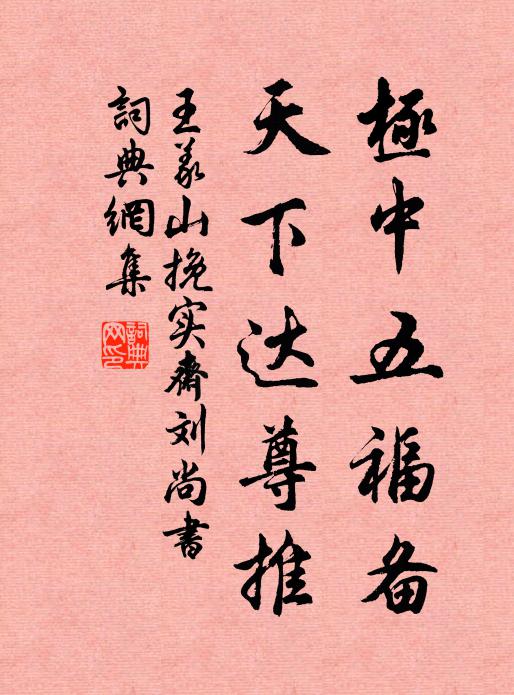 極中五福备
天下达尊推
王义山挽实齋刘尚書
詞典網集
詞典网印